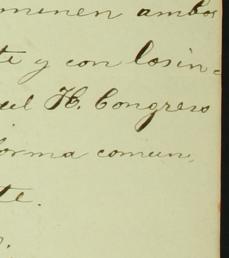 ominen ambos
te y con losin-
uel H. Congreso
forma comun,
te.